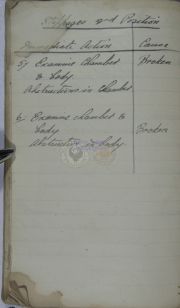 Stoppages 2nd Position
Immediate Action Cause
5) Examine Chamber Broken
& body.
Obstructions in Chamber
6 Examine chamber &
body Broken
Obstruction in body